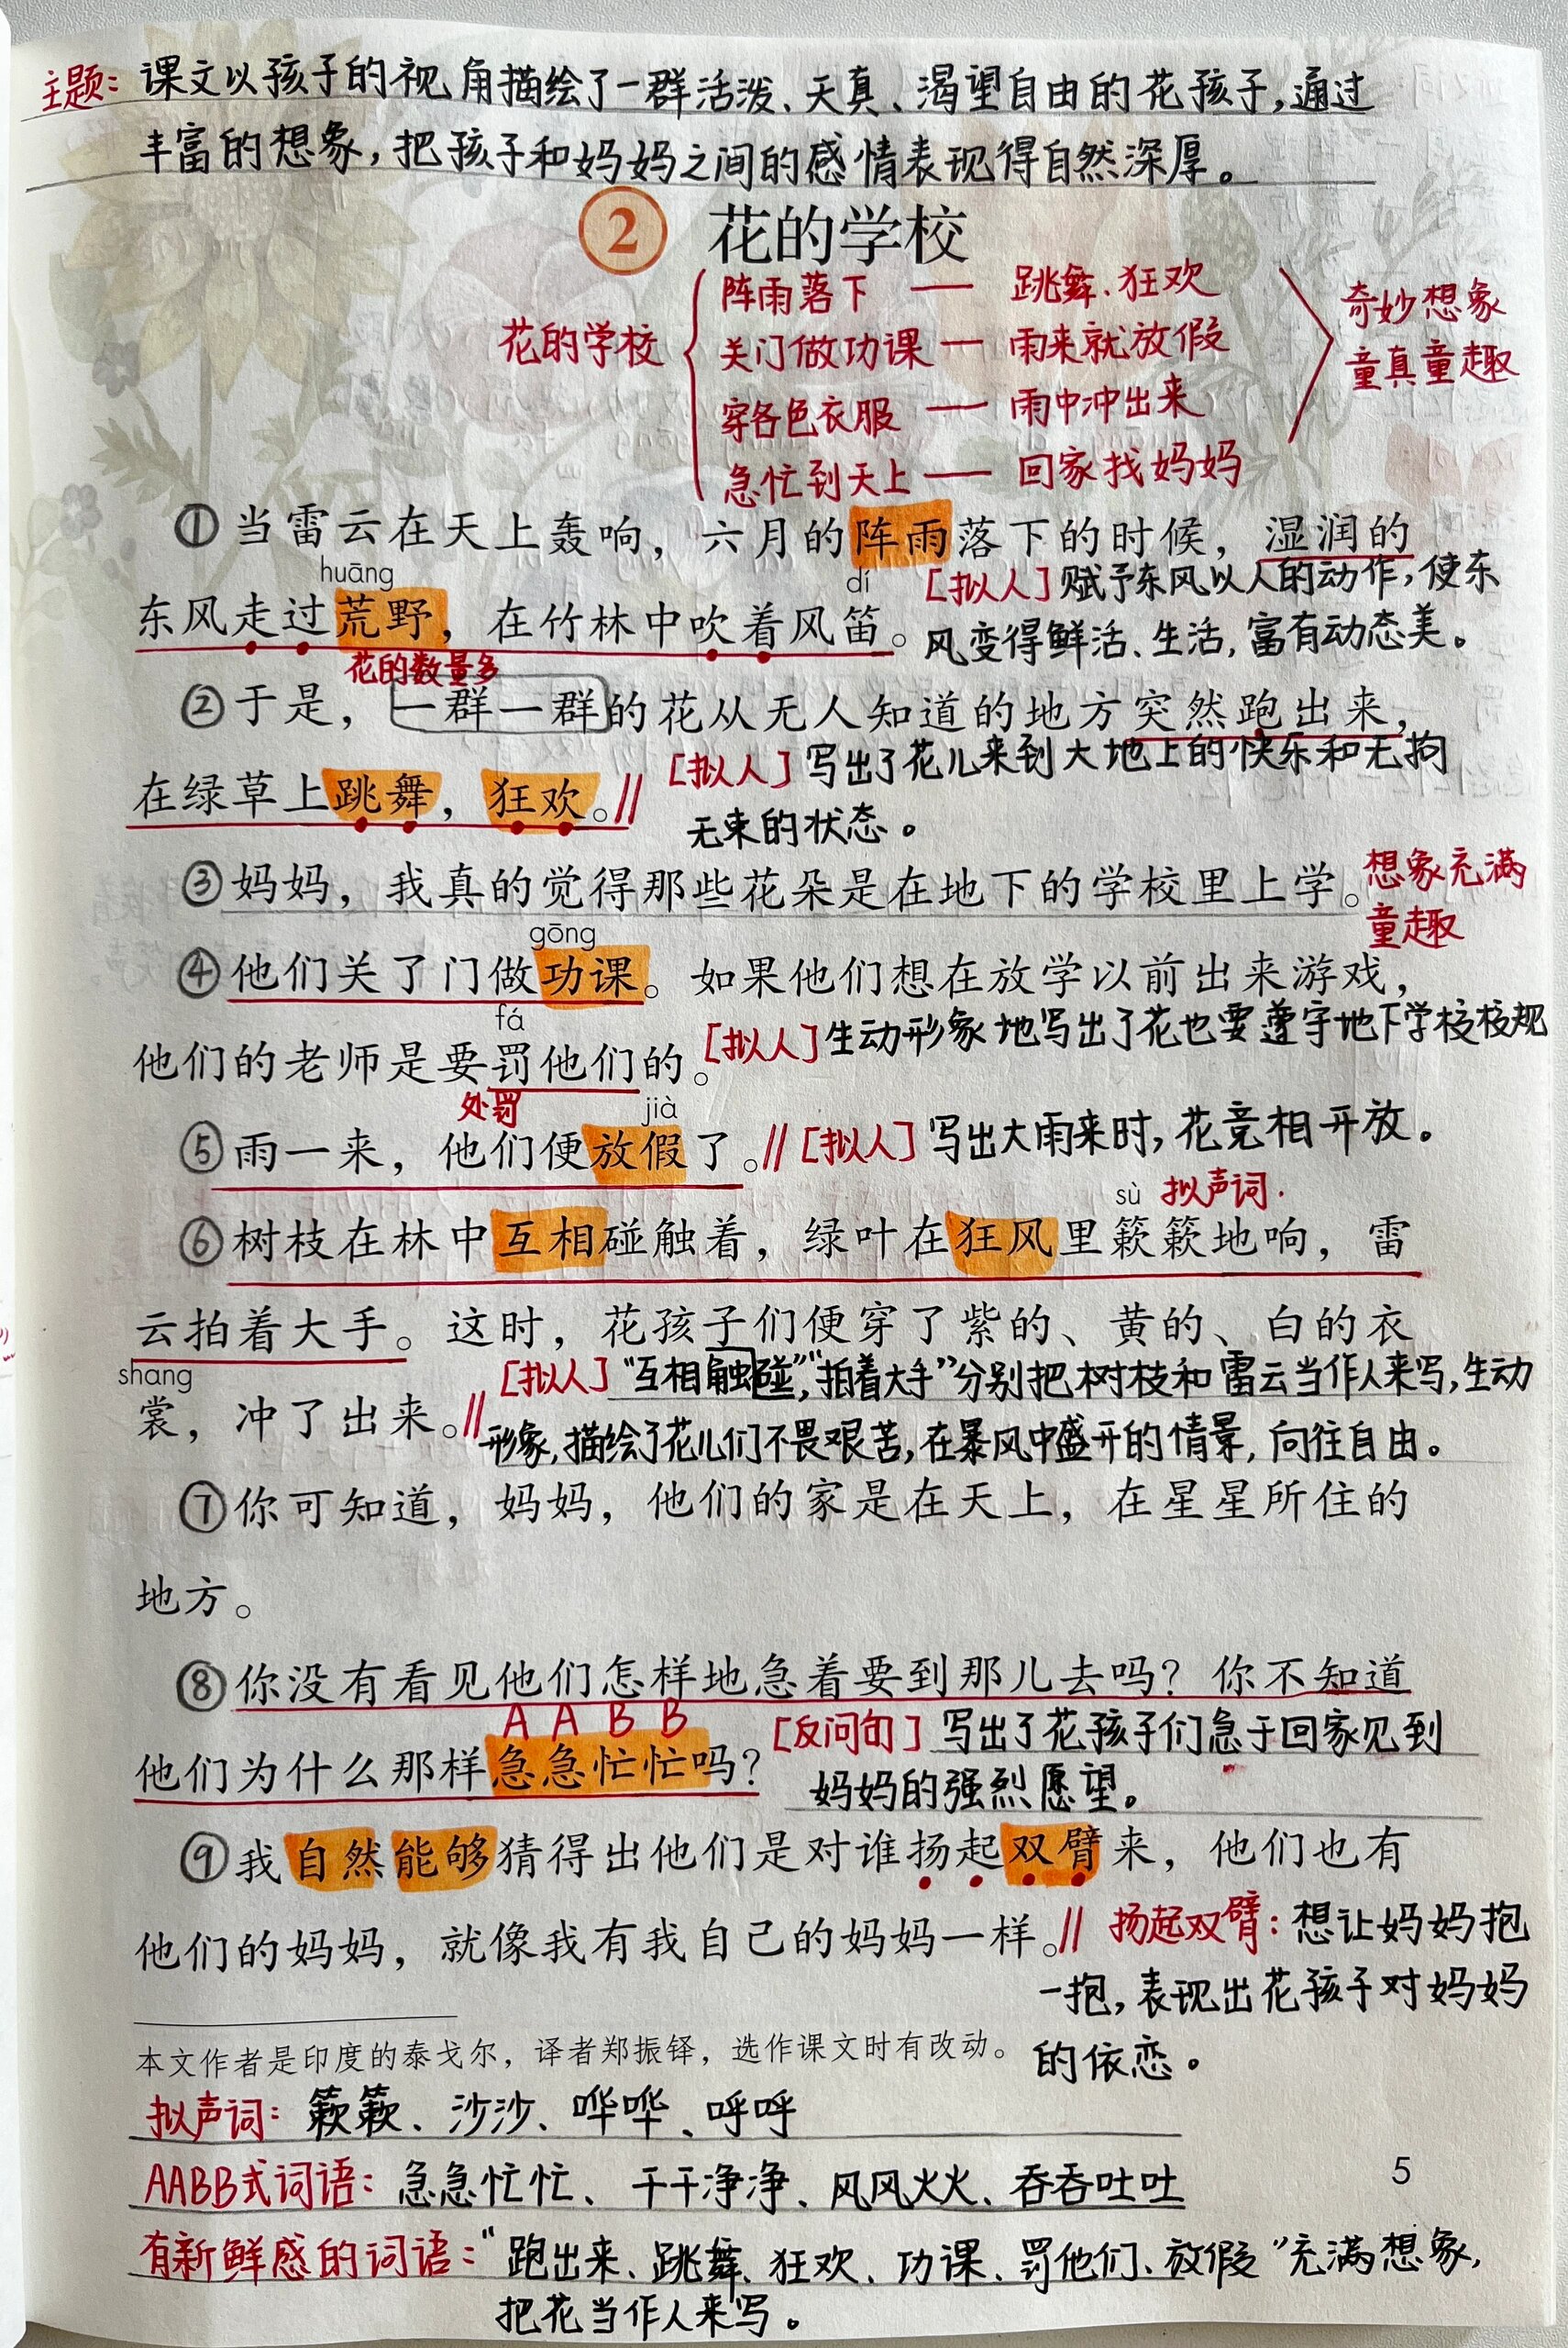 主题：课文以孩子的视角描绘了一群活泼、天真、渴望自由的花孩子，通过
丰富的想象，把孩子和妈妈之间的感情表现得自然深厚。
2 花的学校
花的学校
阵雨落下 — 跳舞、狂欢
关门做功课 — 雨来就放假
穿各色衣服 — 雨中冲出来
急忙到天上 — 回家找妈妈
奇妙想象
童真童趣
①当雷云在天上轰响，六月的阵雨落下的时候，湿润的
huāng
dí
[拟人]赋予东风以人的动作，使东
东风走过荒野，在竹林中吹着风笛。
风变得鲜活、生活，富有动态美。
花的数量多
②于是，一群一群的花从无人知道的地方突然跑出来，
[拟人]写出了花儿来到大地上的快乐和无拘
在绿草上跳舞，狂欢。//
无束的状态。
③妈妈，我真的觉得那些花朵是在地下的学校里上学。
想象充满
童趣
gōng
④他们关了门做功课。如果他们想在放学以前出来游戏，
fá
他们的老师是要罚他们的。
[拟人]生动形象地写出了花也要遵守地下学校校规
处罚
jià
⑤雨一来，他们便放假了。//[拟人]写出大雨来时，花竞相开放。
sù 拟声词.
⑥树枝在林中互相碰触着，绿叶在狂风里簌簌地响，雷
云拍着大手。这时，花孩子们便穿了紫的、黄的、白的衣
shang
[拟人]“互相触碰”，“拍着大手”分别把树枝和雷云当作人来写，生动
裳，冲了出来。//
形象，描绘了花儿们不畏艰苦，在暴风中盛开的情景，向往自由。
⑦你可知道，妈妈，他们的家是在天上，在星星所住的
地方。
⑧你没有看见他们怎样地急着要到那儿去吗？你不知道
A A B B
[反问句]写出了花孩子们急于回家见到
他们为什么那样急急忙忙吗？
妈妈的强烈愿望。
⑨我自然能够猜得出他们是对谁扬起双臂来，他们也有
他们的妈妈，就像我有我自己的妈妈一样。//
扬起双臂：想让妈妈抱
一抱，表现出花孩子对妈妈
的依恋。
本文作者是印度的泰戈尔，译者郑振铎，选作课文时有改动。
拟声词：簌簌、沙沙、哗哗、呼呼
AABB式词语：急急忙忙、干干净净、风风火火、吞吞吐吐
5
有新鲜感的词语：“跑出来、跳舞、狂欢、功课、罚他们、放假”充满想象，
把花当作人来写。